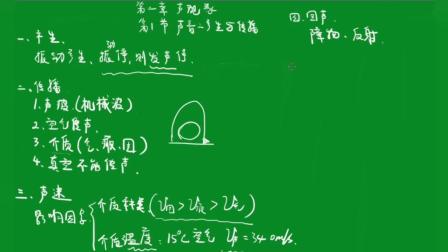 第一章 声现象
第1节 声音的产生与传播
一、产生
振动产生、振停,则发声停.
二、传播
1.声波(机械波)
2.空气传声
3.介质(气、液、固)
4.真空不能传声
三、声速
影响因素
介质种类(V固>V液>V气)
介质温度:15℃空气 V声=340m/s.
四.回声
障物.反射